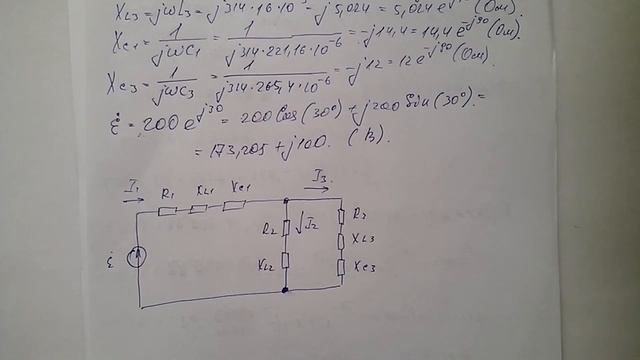 XL3 = jωL3 = j314·16·10⁻³ = j5,024 = 5,024 e^j90 (Ом)
Xc1 = 1/jωC1 = 1/j314·221,16·10⁻⁶ = -j14,4 = 14,4 e^-j90 (Ом).
Xc3 = 1/jωC3 = 1/j314·265,4·10⁻⁶ = -j12 = 12 e^-j90 (Ом).
Ė = 200 e^j30 = 200 Cos(30°) + j200 Sin(30°) =
= 173,205 + j100. (В).
I1 I3
R1 XL1 Xc1
R2 I2 R3
Ė XL2 XL3
Xc3